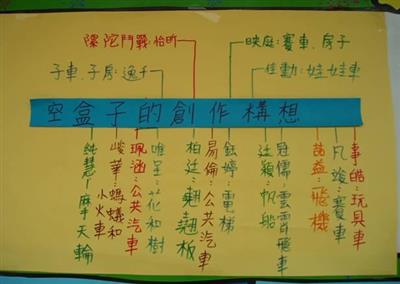 陀螺鬥戰:怡昕
子車、子房:逸千
映庭:賽車、房子
佳勳:娃娃車
空盒子的創作構想
純慧-摩天輪
峻華:螞蟻和小火車
珮涵:公共汽車
唯呈:花和樹
柏廷:翹翹板
易倫:公共汽車
鈺婷:電梯
廷穎:帆船
冠儒:雲霄飛車
喆益:飛機
凡竣:賽車
事皓:玩具車